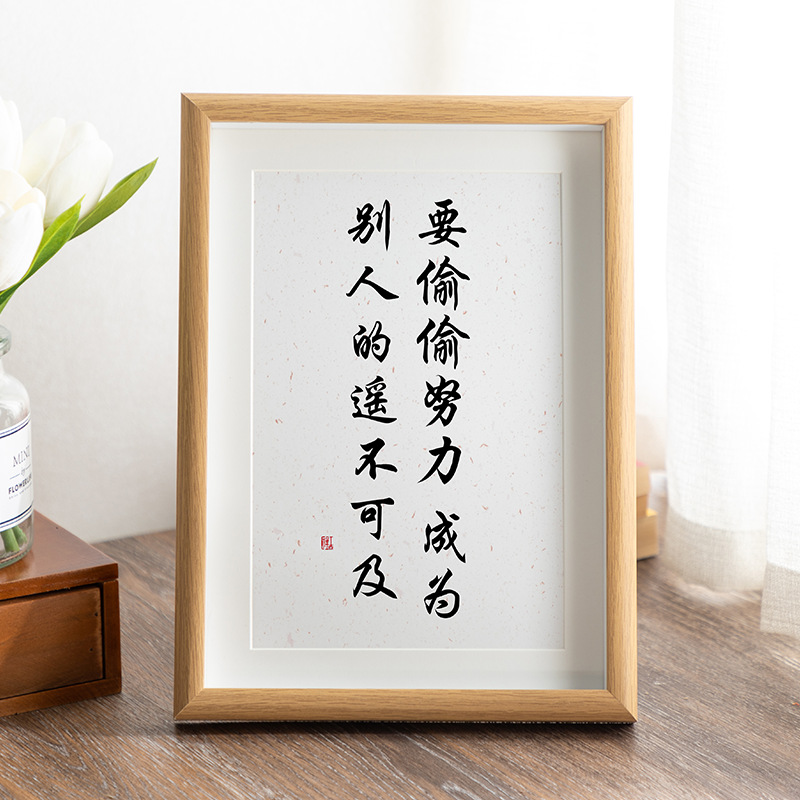 要偷偷努力 成为
别人的遥不可及
MINI